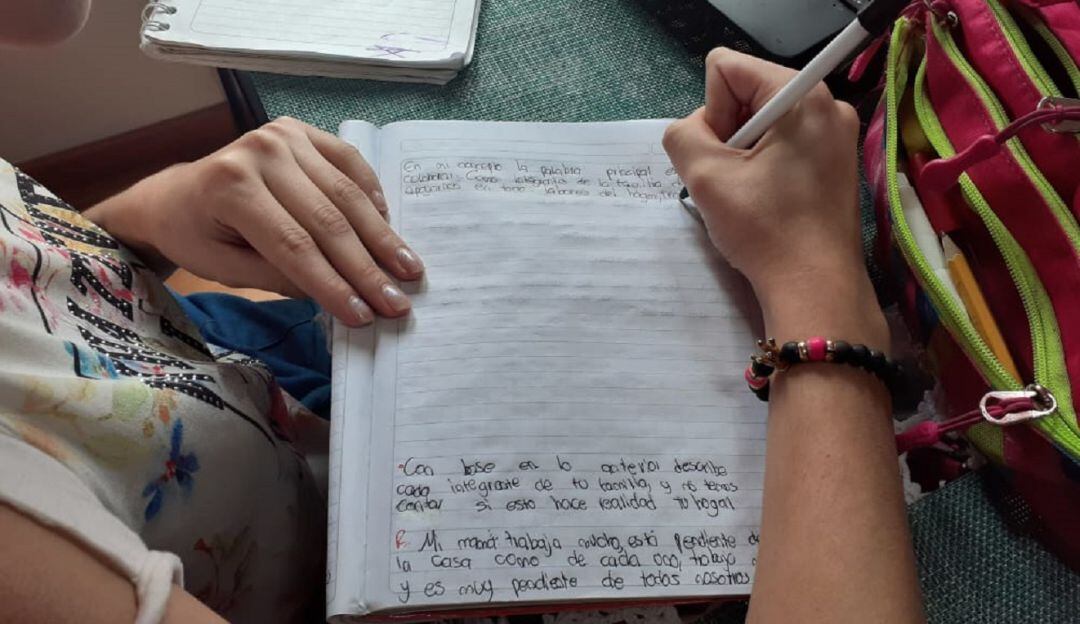 En mi concepto la palabra principal es
colaborar. Como integrante de la familia
apoyarnos en todo labores del hogar,
•Con base en lo anterior describe
cada integrante de tu familia, y nos
contar si esto hace realidad tu hogar
R. Mi mamá trabaja mucho, está pendiente de
la casa como de cada uno, trabajo
y es muy pendiente de todos nosotros